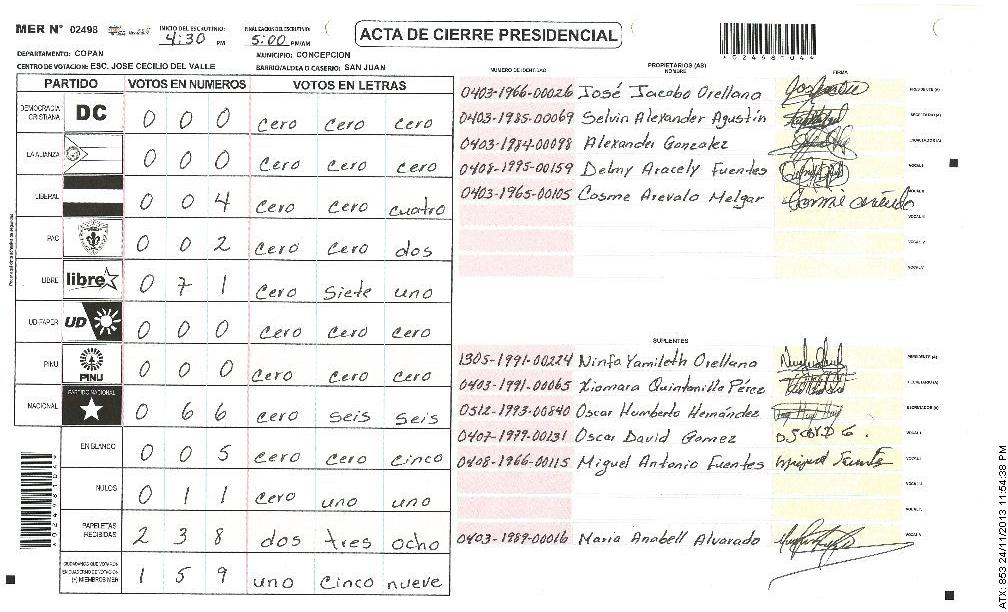 MER N° 02498
INICIO DEL ESCRUTINIO: 4:30 PM
FINALIZACION DEL ESCRUTINIO: 5:00 PM/AM
ACTA DE CIERRE PRESIDENCIAL
DEPARTAMENTO: COPAN
MUNICIPIO: CONCEPCION
CENTRO DE VOTACION: ESC. JOSE CECILIO DEL VALLE
BARRIO/ALDEA O CASERIO: SAN JUAN
PARTIDO VOTOS EN NUMEROS VOTOS EN LETRAS
DEMOCRACIA CRISTIANA DC 0 0 0 cero cero cero
LA ALIANZA 0 0 0 cero cero cero
LIBERAL 0 0 4 cero cero cuatro
PAC 0 0 2 cero cero dos
LIBRE libre 0 7 1 cero siete uno
UD-FAPER UD 0 0 0 cero cero cero
PINU PINU 0 0 0 cero cero cero
NACIONAL PARTIDO NACIONAL 0 6 6 cero seis seis
EN BLANCO 0 0 5 cero cero cinco
NULOS 0 1 1 cero uno uno
PAPELETAS RECIBIDAS 2 3 8 dos tres ocho
CIUDADANOS QUE VOTARON EN CUADERNO DE VOTACION (+) MIEMBROS MER 1 5 9 uno cinco nueve
NUMERO DE IDENTIDAD
PROPIETARIOS (AS)
NOMBRE
FIRMA
0403-1966-00026 José Jacobo Orellana PRESIDENTE (A)
0403-1985-00069 Selvin Alexander Agustín SECRETARIO (A)
0403-1984-00098 Alexander Gonzalez ESCRUTADOR (A)
0408-1995-00159 Delmy Aracely Fuentes VOCAL I
0403-1965-00105 Cosme Arevalo Melgar
SUPLENTES
1305-1991-00224 Ninfa Yamileth Orellana PRESIDENTE (A)
0403-1991-00065 Xiomara Quintanilla Pérez SECRETARIO (A)
0512-1993-00840 Oscar Humberto Hernández ESCRUTADOR (A)
0407-1979-00131 Oscar David Gomez VOCAL I
0408-1966-00115 Miguel Antonio Fuentes
0403-1989-00016 Maria Anabell Alvarado
ATX: 853 24/11/2013 11:54:38 PM